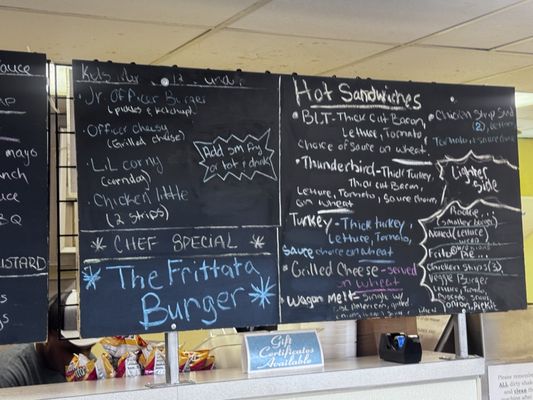 sauce
mayo
BQ
USTARD
Kids Jr. 12 under
Jr. Officer Burger
(pickles & Ketchup)
Officer cheesy
(Grilled cheese)
Lil corny
(corndog)
Chicken little
(2 strips)
Add sm fry
or hot & drink
CHEF SPECIAL
The Frittata
Burger
Hot Sandwiches
BLT-Thick Cut Bacon,
Lettuce, Tomato,
choice of sauce on wheat.
Thunderbird-Thick Turkey,
Thick cut Bacon,
Lettuce, Tomato, Sauce choice
on wheat
Turkey-Thick turkey,
Lettuce, Tomato,
sauce choice on wheat
Grilled Cheese-served
on wheat
Wagon Melt-Single w/
Chicken Strip Sand
(2), Lettuce,
Tomato, sauce
Lighter
Side
Rookie
(smaller burger)
Naked (Lettuce)
Frito Pie
Chicken Strips (3)
Veggie Burger
Lettuce, Tomato,
onion, Pickle
Gift
Certificates
Available
Please remember